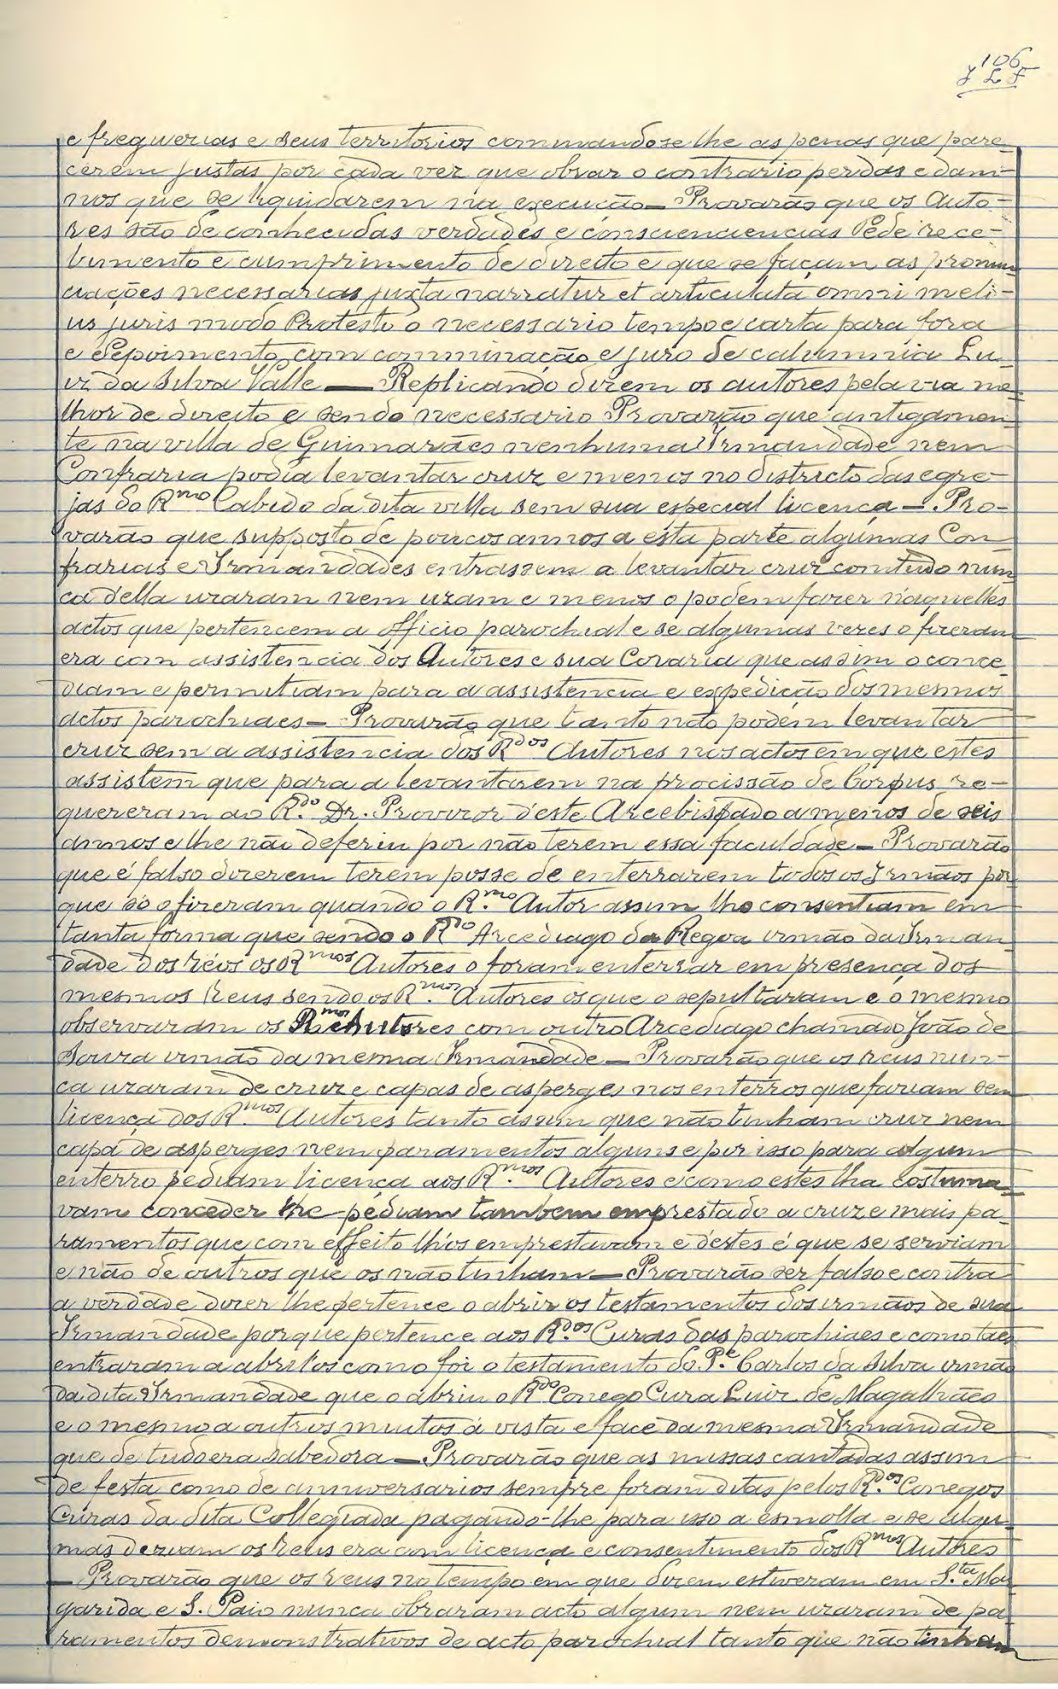 106
J L F
e freguerias e seus territorios commandose lhe as penas que pare-
cerem justas por cada vez que obrar o contrario perdas e dam-
nos que se liquidarem na execução — Provarão que os Auto-
res são de conhecidas verdades e conscienciencias Pede rece-
bimento e cumprimento de direito e que se façam as pronun
ciações necessarias juxta narratur et articulata omni meli-
us juris modo Protesto o necessario tempo e carta para fora
e depoimento com comminação e juro de calumnia Lu-
iz da Silva Valle — Replicando dizem os autores pela via me
lhor de direito e sendo necessario Provarão que antigamen
te na villa de Guimarães nenhuma Irmandade nem
Confraria podia levantar cruz e menos no districto das egre-
jas do Rmo Cabido da dita villa sem sua especial licença — Pro-
varão que supposto de poucos annos a esta parte algumas Con-
frarias e Irmandades entrassem a levantar cruz comtudo nun
ca della uzaram nem uzam e menos o podem fazer n'aquelles
actos que pertencem a officio parochial e se algumas vezes o fizeram
era com assistencia dos Autores e sua Coraria que assim o conce
diam e permitiam para a assistencia e expedição dos mesmos
actos parochiaes — Provarão que tanto não podem levantar
cruz sem a assistencia dos Rdos Autores nos actos em que estes
assistem que para a levantarem na procissão de Corpus re-
quereram ao R.do Dr. Provizor d'este Arcebispado a menos de seis
annos e lhe não deferiu por não terem essa faculdade — Provarão
que é falso dizerem terem posse de enterrarem todos os Irmãos por
que só o fizeram quando o R.mo Autor assim lho consentiam em
tanta forma que sendo o Rdo Arcediago da Regoa irmão da Irman
dade dos réos os Rmos Autores o foram enterrar em presença dos
mesmos reus sendo os R.mos Autores os que o sepultaram e o mesmo
observaram os Rmos Autores com outro Arcediago chamado João de
Souza irmão da mesma Irmandade — Provarão que os reus nun-
ca uzaram de cruz e capas de asperges nos enterros que faziam sem
licença dos R.mos Autores tanto assim que não tinham cruz nem
capa de asperges nem paramentos alguns e por isso para algum
enterro pediam licença aos R.mos Autores e como estes lha costuma
vam conceder lhe pediam tambem emprestado a cruz e mais pa-
ramentos que com effeito lhos emprestavam e destes é que se serviam
e não de outros que os não tinham — Provarão ser falso e contra
a verdade dizer lhe pertence o abrir os testamentos dos irmãos de sua
Irmandade porque pertence aos R.dos Curas das parochiaes e como taes
entraram a abril-os como foi o testamento do P.e Carlos da Silva irmão
da dita Irmandade que o abriu o Rdo Conego Cura Luiz de Magalhães
e o mesmo a outros muitos á vista e face da mesma Irmandade
que de tudo era sabedora — Provarão que as missas cantadas assim
de festa como de anniversarios sempre foram ditas pelos R.dos Conegos
Curas da dita Collegiada pagando-lhe para isso a esmolla e se algu-
mas deziam os reus era com licença e consentimento dos Rmos Autores
— Provarão que os reus no tempo em que dizem estiveram em S.ta Ma
garida e S. Paio nunca obraram acto algum nem uzaram de pa-
ramentos demonstrativos de acto parochial tanto que não tinham